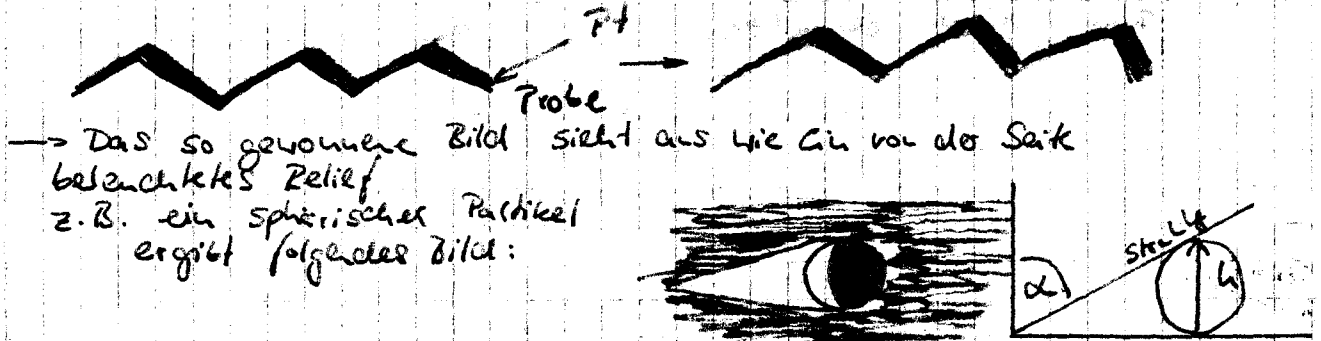 Pt
Probe
→ Das so gewonnene Bild sieht aus wie ein von der Seite
beleuchtetes Relief
z.B. ein sphärischer Partikel
ergibt folgendes Bild:
α
h